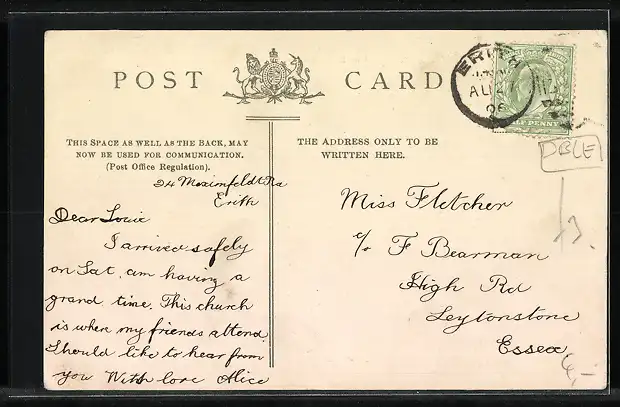 POST CARD
THIS SPACE AS WELL AS THE BACK, MAY
NOW BE USED FOR COMMUNICATION.
(Post Office Regulation).
THE ADDRESS ONLY TO BE
WRITTEN HERE.
24 Maximfeldt Rd
Erith
Dear Louie
I arrived safely
on Sat. am having a
grand time. This church
is where my friends attend.
Should like to hear from
you With love Alice
Miss Fletcher
c/o F Bearman
High Rd
Leytonstone
Essex
ERITH
AU
PENNY
DBLE